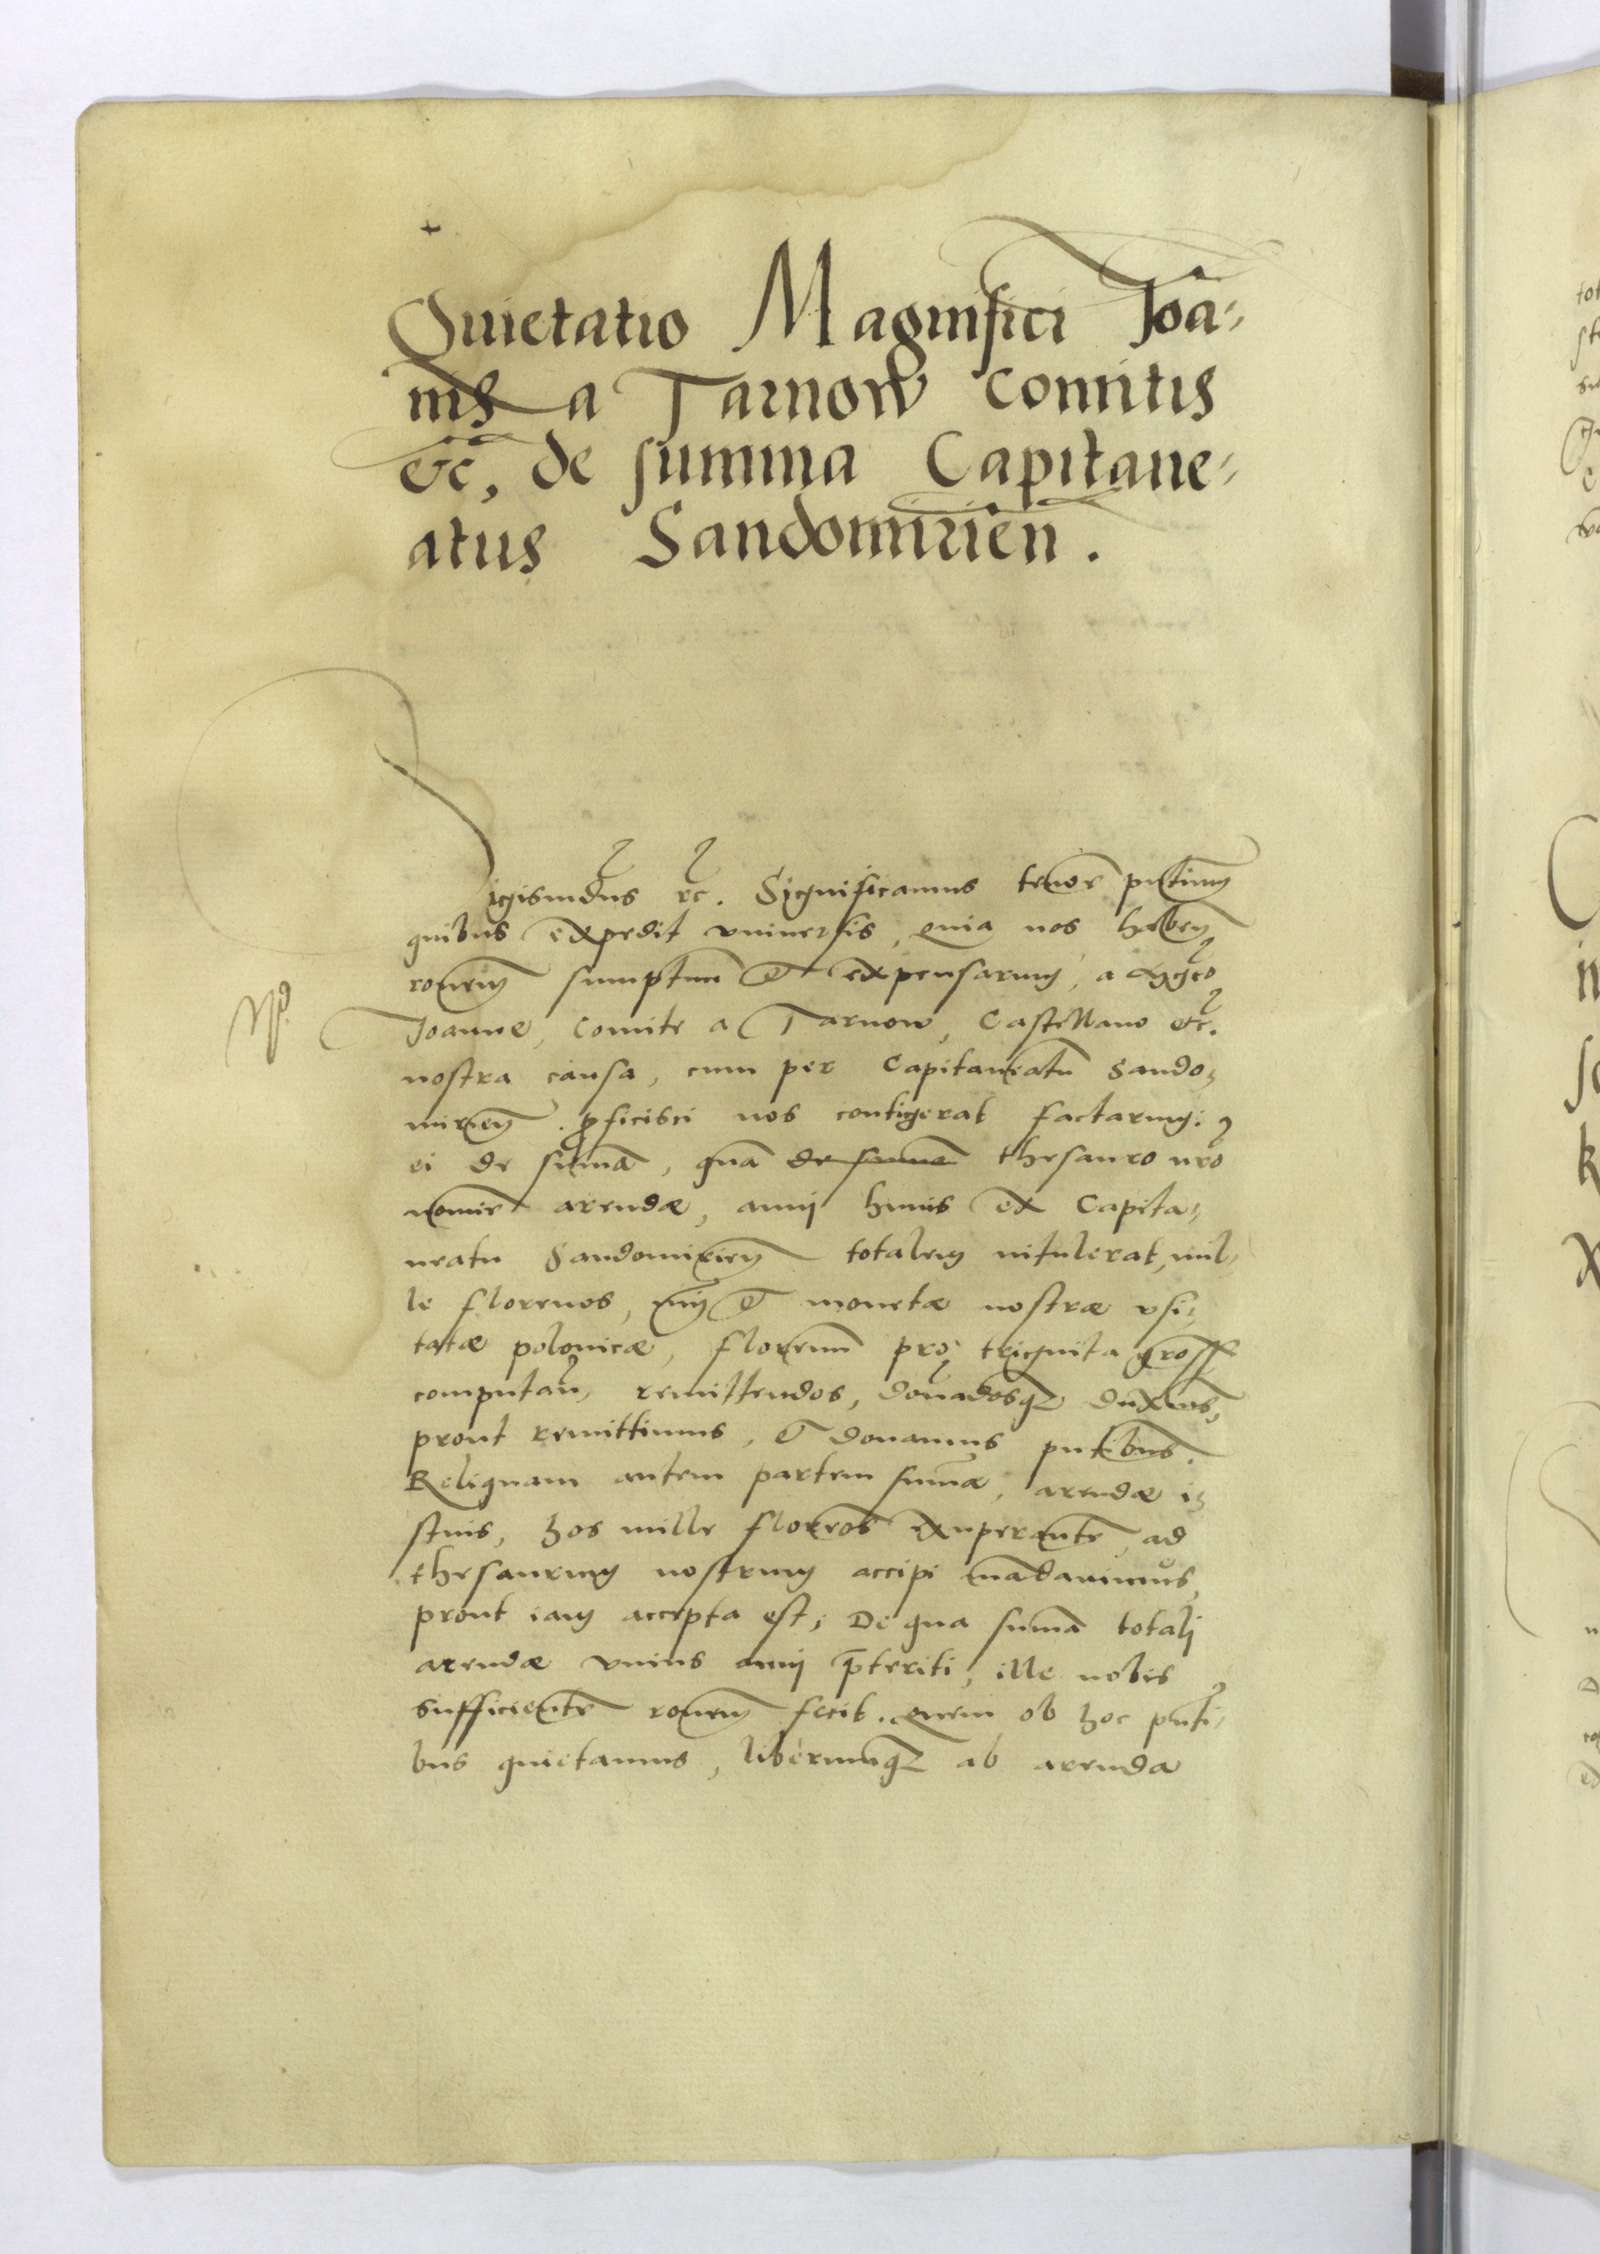 Quietatio Magnifici Joā-
nis a Tarnow Comitis
etc, de summa Capitane-
atus Sandomirien.
igismūdus etc. Significamus tenore pñtium
quibus expedit vniuersis, quia nos haben
ronem sumptuum et expensarum, a
Joanne, Comite a Tarnow, Castellano etc.
nostra causa, cum per Capitaneatū Sando-
mirien. proficisci nos contigerat factarum:
ei de sūmā, quā de summa thesauro nrō
nomīe arendæ, annj huius ex Capita-
neatu Sandomirien totalem intulerat, mil-
le florenos, et monetæ nostræ vsi-
tatæ polonicæ, florenum pro triginta gross
computan, remittendos, donādosq duxim9,
prout remittimus, et donamus pñtibus.
Reliquam autem partem sūmæ, arendæ i-
stius, hos mille florenos exuperantē, ad
thesaurum nostrum accipi mādauimus,
prout iam accepta est, De qua sūma totalj
arendæ vnius annj præteriti, ille nobis
sufficientē ronem fecit. quem ob hoc pñti-
bus quietamus, liberumq ab arenda